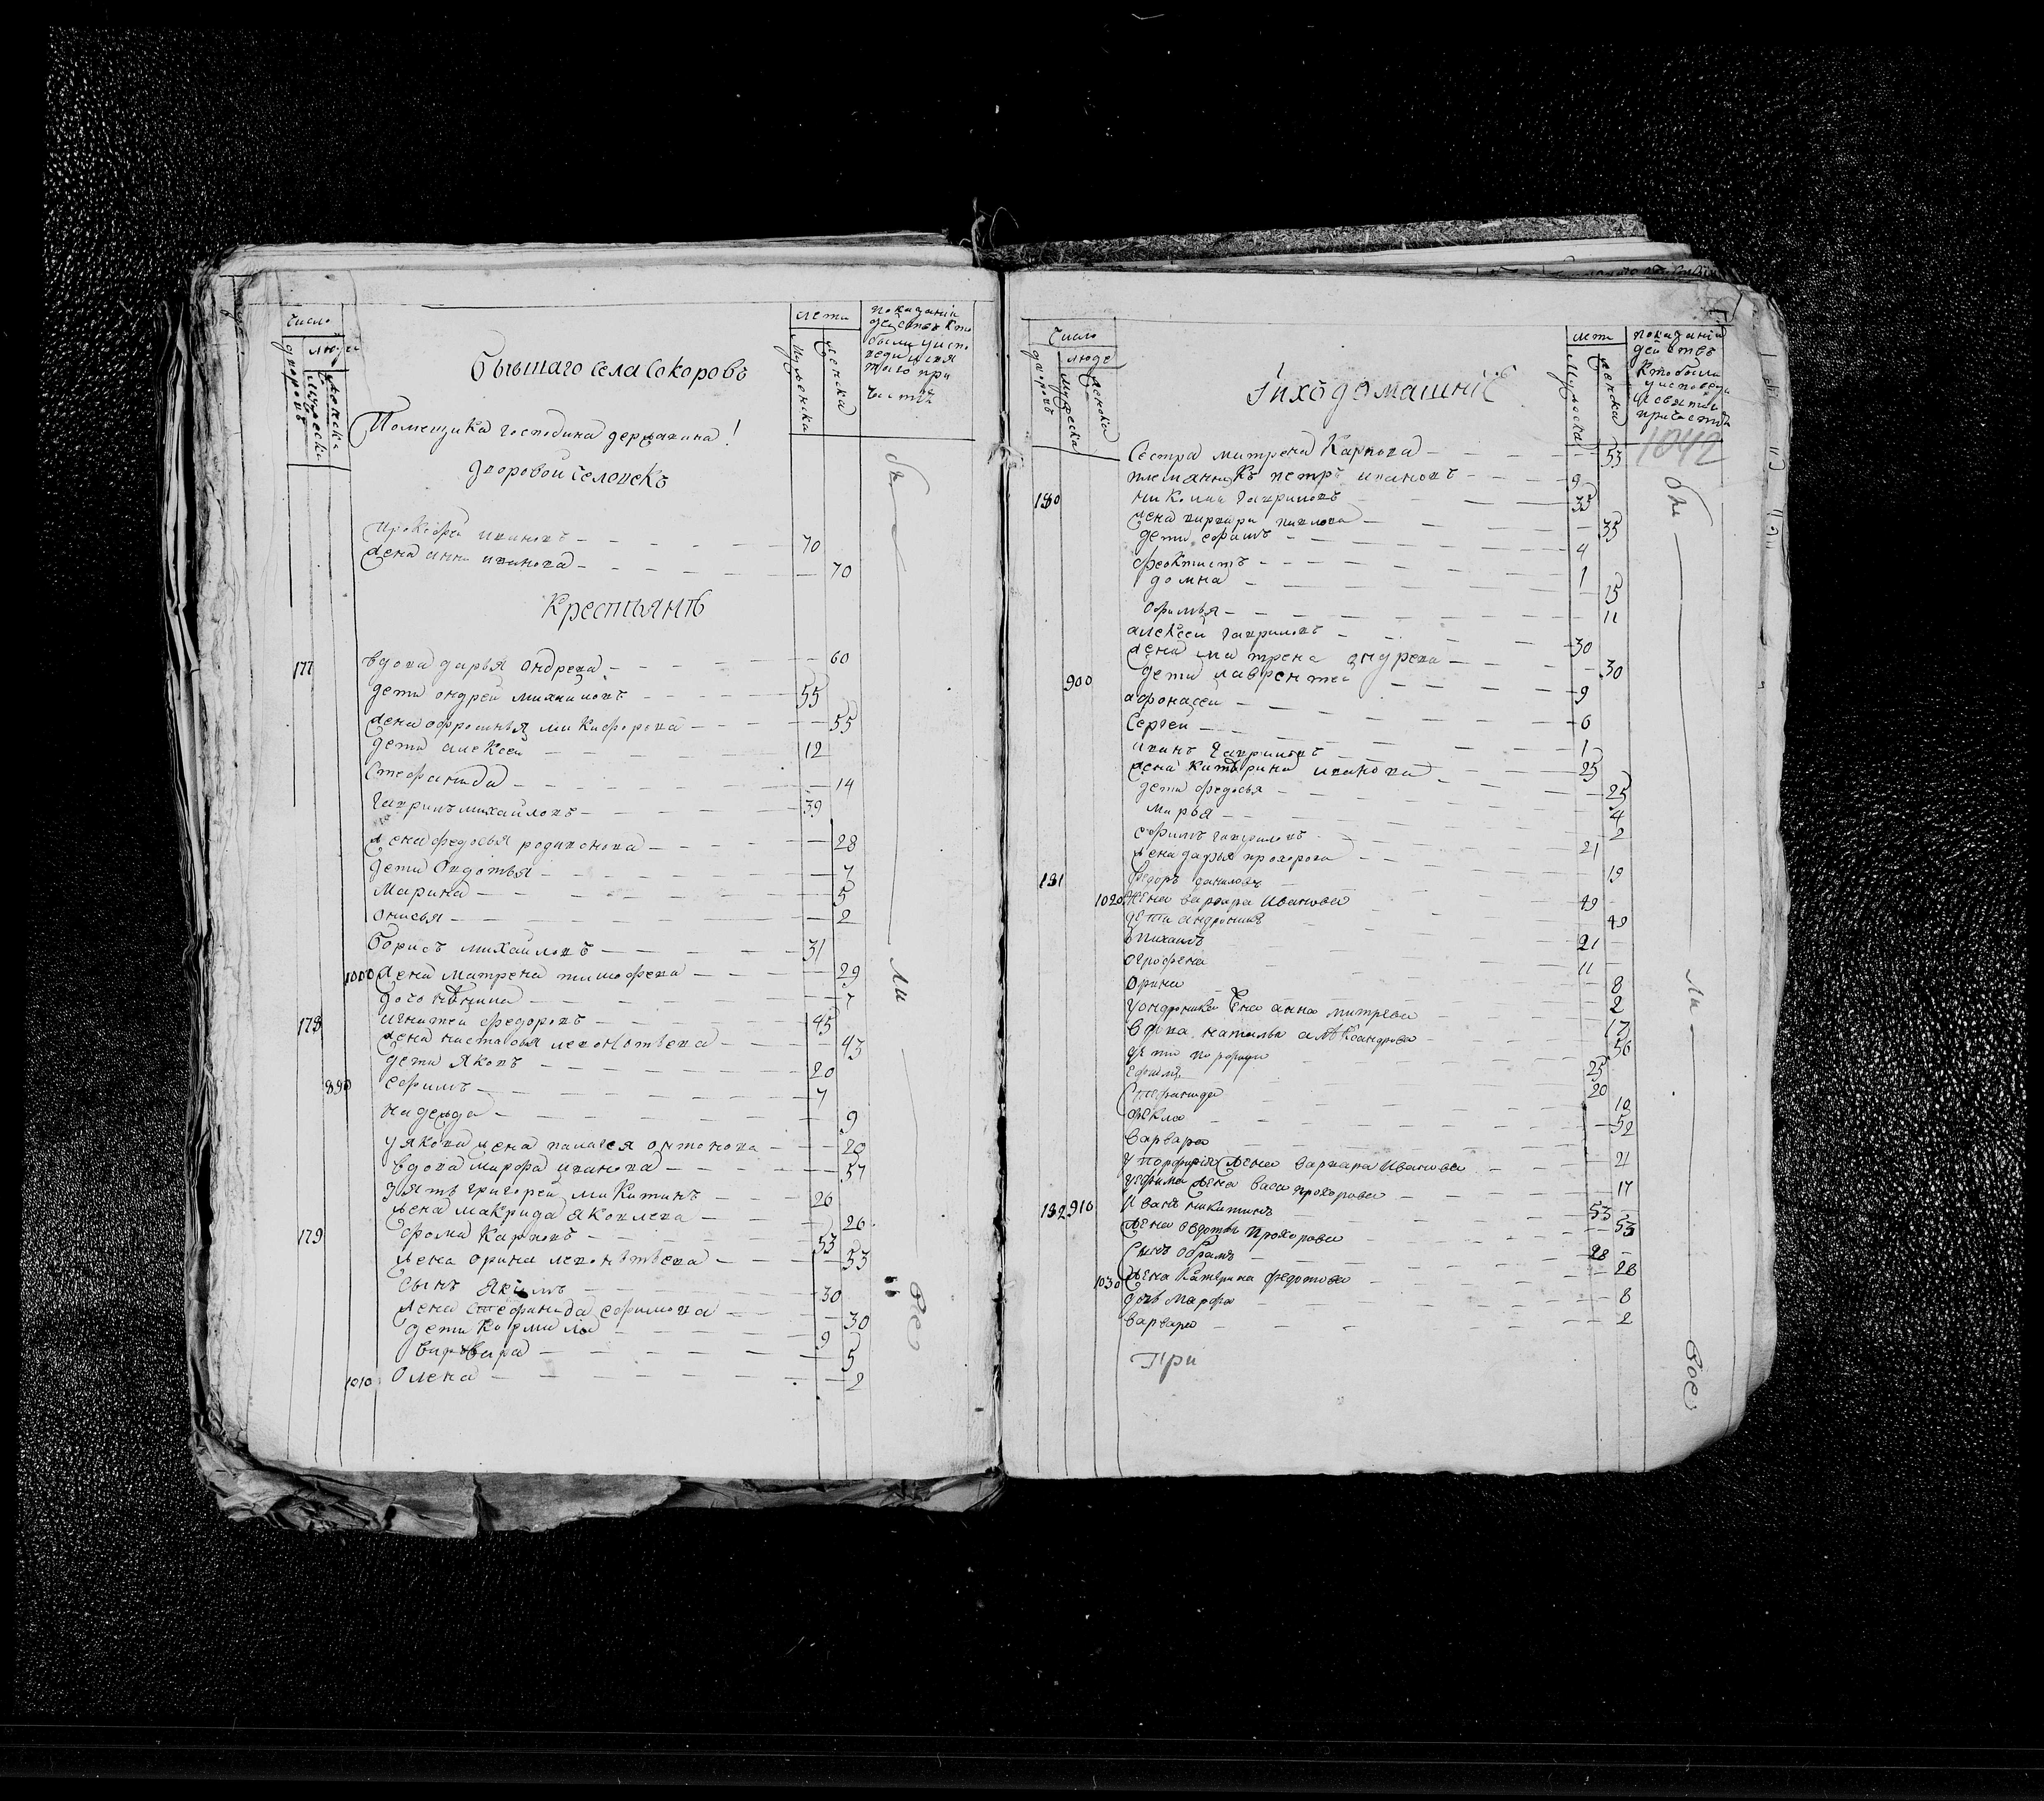 Число
Лета
дворовъ
люде
Мужеска
Женска
Мужеска
Женска
Бывшаго села Сокоровъ
Помещика господина державина
дворовой человекъ
Прокофей ивановъ 70
жена анна иванова 70
Крестьянѣ
177 вдова дарья Ондрева 60
дети ондрей михайловъ 55
жена офросинья микифорова 55
дети алексей 12
Стефанида 14
гаврилъ михайловъ 39
жена федосья родионова 28
дети Овдотья 7
Марина 5
онисья 2
борисъ михайловъ 31
1000 жена матрена тимофева 29
178 игнатей федоровъ 45
жена настасья леконтьева 43
дети Яковъ 20
890 ефимъ 7
надежда 9
у якова жена палагея онтонова 20
вдова марфа иванова 57
зять григорей микитинъ 26
жена макрида яковлева 26
179 фома Карповъ 53
жена орина леконтьева 53
сынъ якимъ 30
жена стефанида ефимова 30
дети Кормила 9
варвара 5
1010 Олена 2
бы
ли
вое
Число
дворовъ
люде
Мужеска
Женска
Їихъ домашнїе
лети
Мужеска
Женска
показанїи
1042
Сестра матрена Карпова 53
племянникъ петръ ивановъ 9
180 микита гавриловъ 35
жена варвара павлова 35
дети ефимъ 4
феоктистъ 1
домна 15
Офимья 11
алексей гавриловъ 30
жена матрена андрева 30
900 дети лаврентей 9
афонасей 6
Сергей 1
иванъ гавриловъ 25
жена катерина иванова 25
дети федосья 4
марья 2
ефимъ гавриловъ 21
жена дарья прохорова 19
181 Федоръ даниловъ 49
1020 жена варвара Иванова 49
дети андроникъ 21
михаилъ 11
огрофена 8
орина 2
у ондроника жена анна митрева 17
вдова наталья алѣксандрова 56
дети порфири 25
ефимъ 20
Стефанида 10
фекла
варвара
у порфирия жена варвара Иванова 21
у ефима жена васа прохорова 17
182 910 Иванъ никитинъ 53
жена овдотья Прохорова 53
сынъ обрамъ 28
1030 жена Катерина федотова 28
дочь марфа 8
варвара 2
При
бы
ли
вое